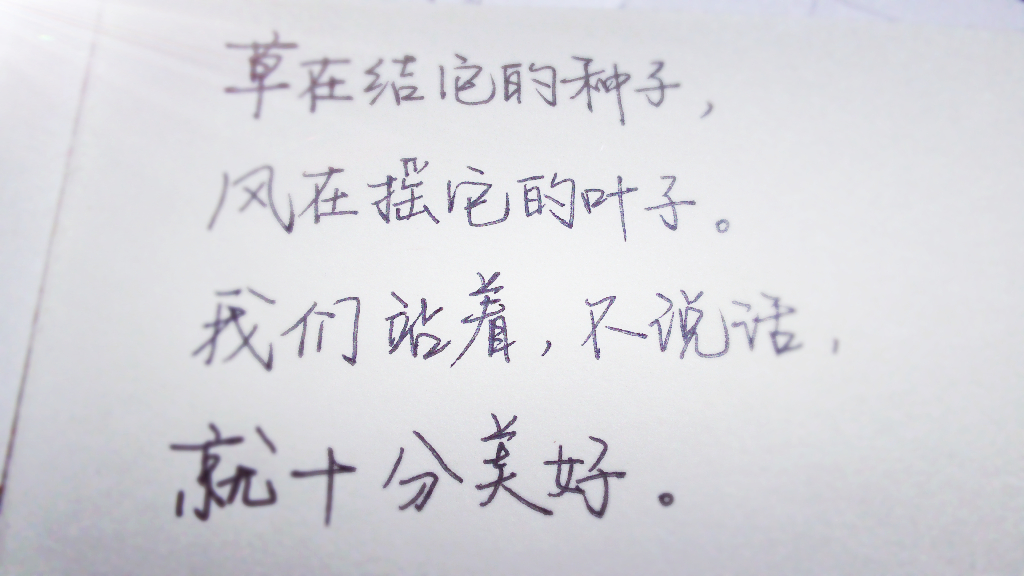 草在结它的种子，
风在摇它的叶子。
我们站着，不说话，
就十分美好。